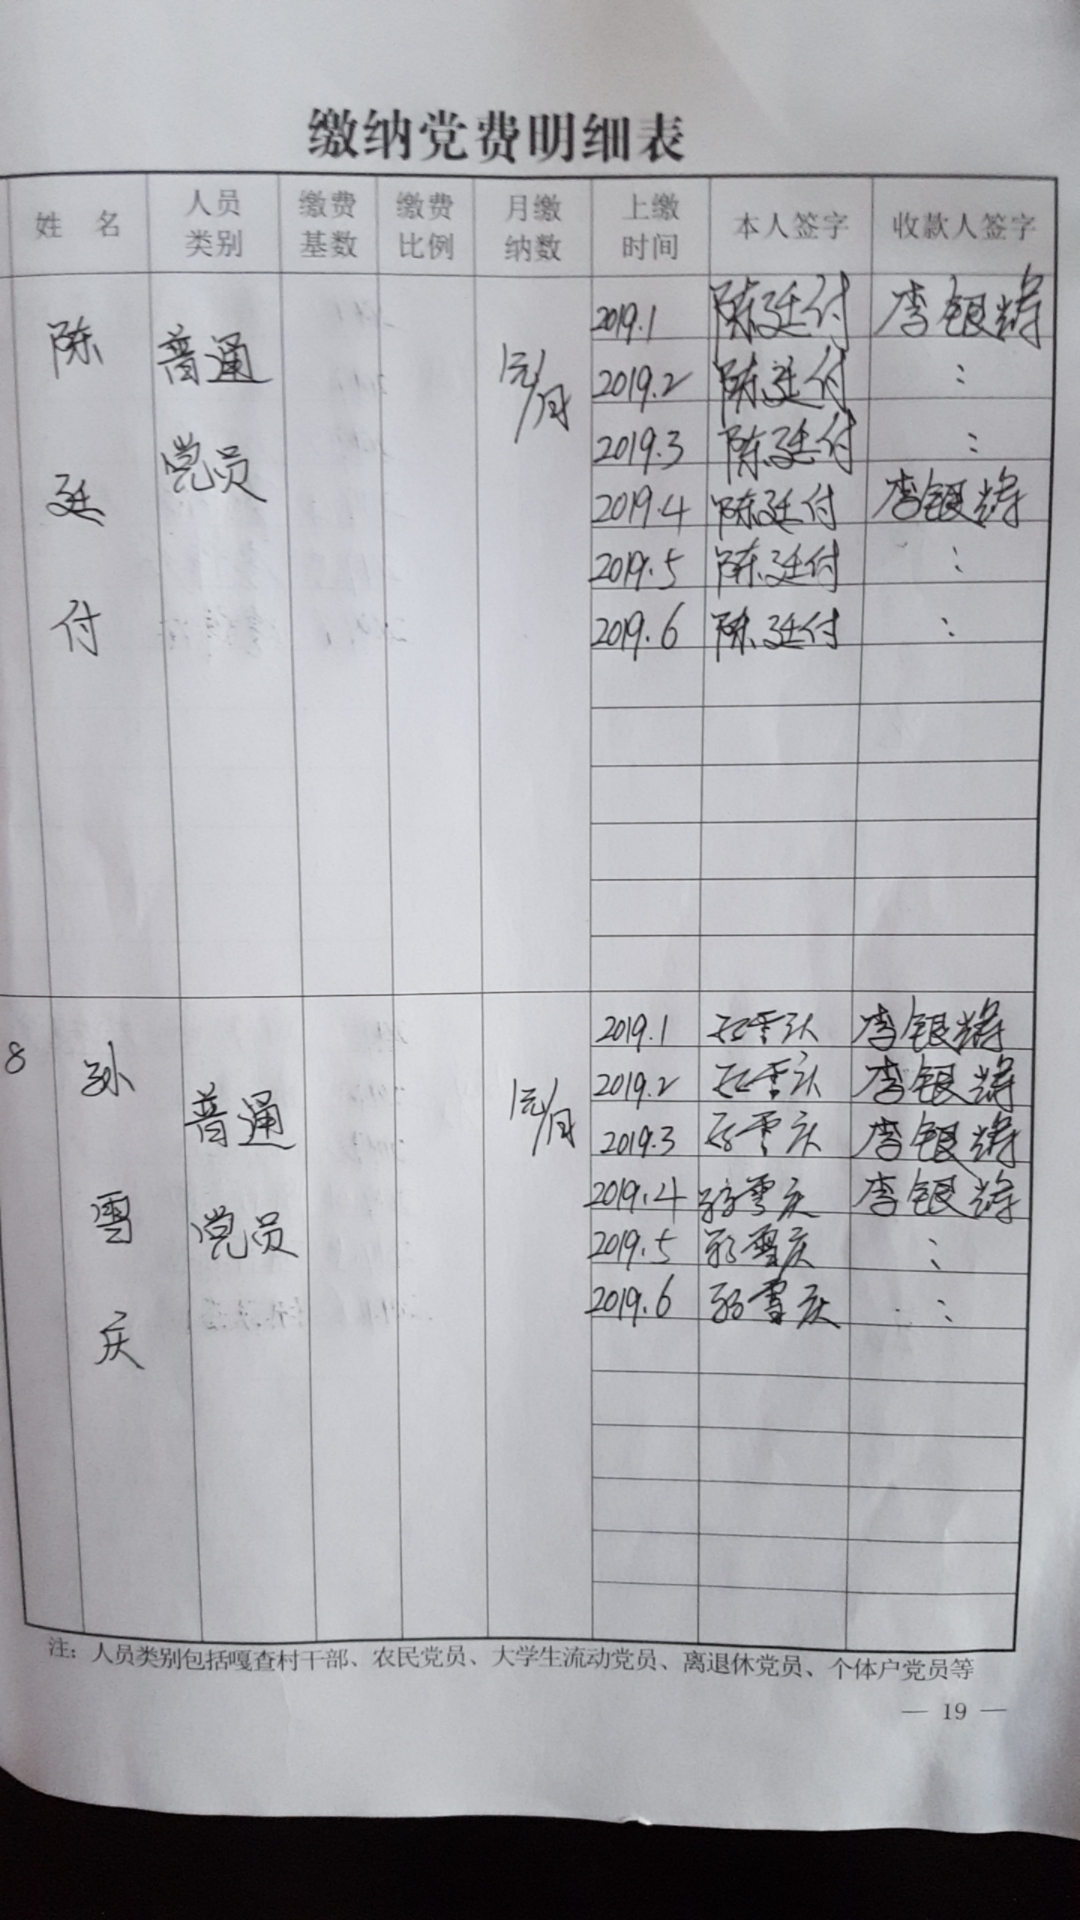 缴纳党费明细表
姓 名 人员类别 缴费基数 缴费比例 月缴纳数 上缴时间 本人签字 收款人签字
陈廷付 普通党员 1元/月
2019.1 陈廷付 李银锛
2019.2 陈廷付 :
2019.3 陈廷付 :
2019.4 陈廷付
2019.5 陈廷付 :
2019.6 陈廷付 :
8 孙雪庆 普通党员 1元/月
2019.1
2019.2
2019.3
2019.4 孙雪庆
2019.5 孙雪庆 :
2019.6 孙雪庆 :
注：人员类别包括嘎查村干部、农民党员、大学生流动党员、离退休党员、个体户党员等
— 19 —